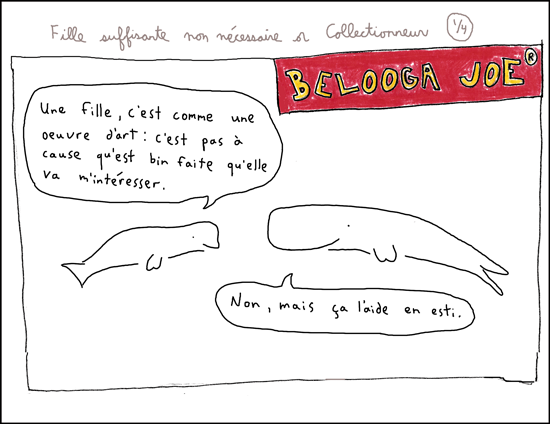 Fille suffisante non nécessaire or Collectionneur 1/4
BELOOGA JOE ®
Une fille, c'est comme une
oeuvre d'art : c'est pas à
cause qu'est bin faite qu'elle
va m'intéresser.
Non, mais ça l'aide en esti.